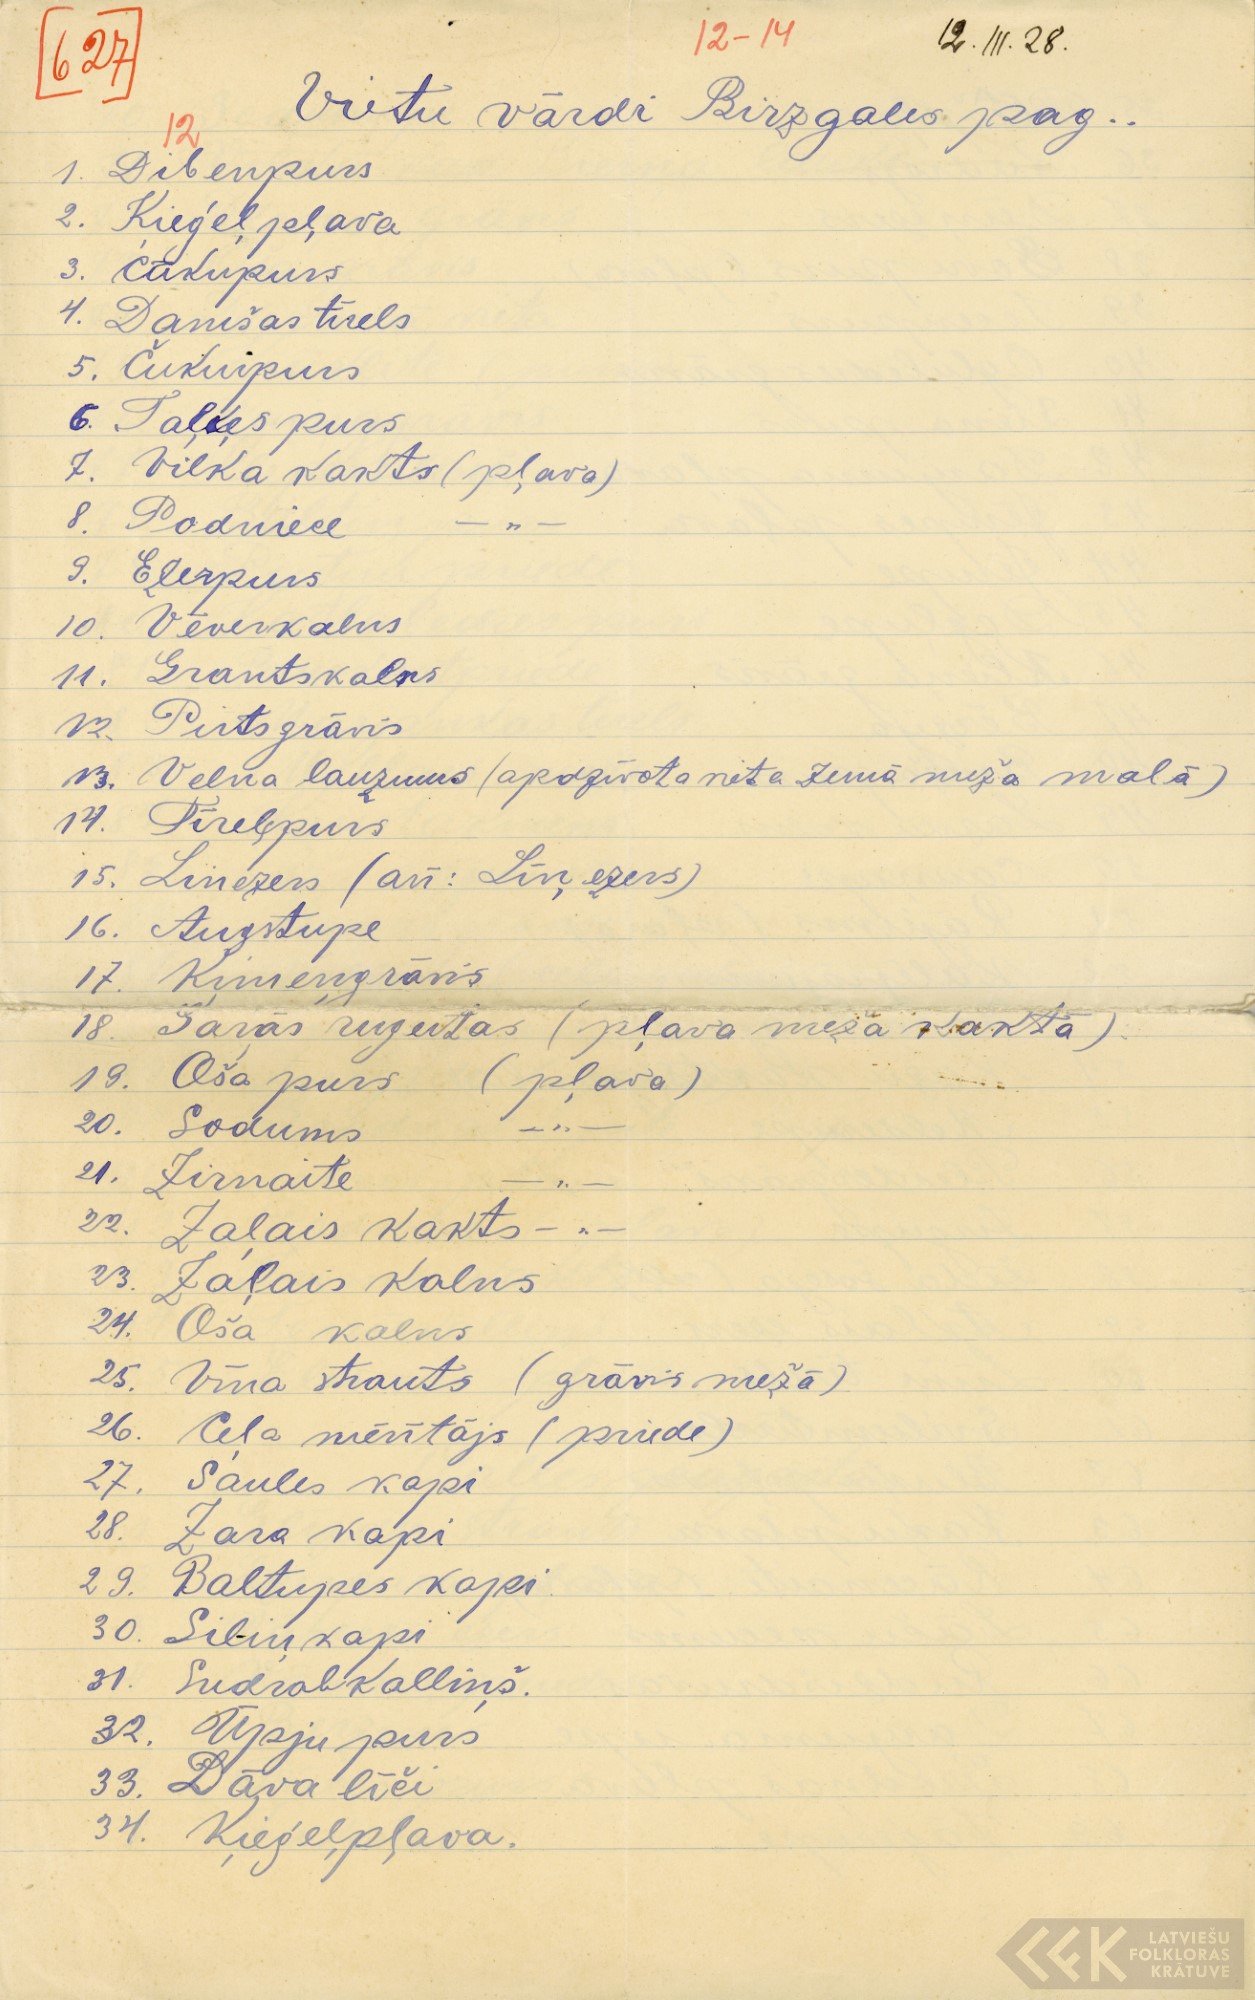 [627]
12-14
12.III.28.
Vietu vārdi Birzgales pag..
12
1. Dibenpurs
2. Ķieģeļpļava
3. Cākupurs
4. Danišas tīrels
5. Čukuipurs
6. Taļķes purs
7. Vilka kakts (pļava)
8. Podniece —„—
9. Elerpurs
10. Vēverkalns
11. Grantskalns
12. Pirtsgrāvis
13. Velna lauzums (apdzīvota vieta zemā meža malā)
14. Tīreļpurs
15. Linezers (arī: Līņezers)
16. Augstupe
17. Ķimeņgrāvis
18. (pļava meža kaktā)
19. Oša purs (pļava)
20. Sodums —„—
21. Zirnaite —„—
22. Zaļais kakts —„—
23. Zaļais kalns
24. Oša kalns
25. Vīna strauts (grāvis mežā)
26. Ceļa mērītājs (priede)
27. Saules kapi
28. Zara kapi
29. Baltupes kapi
30. Siliņkapi
31. Sudrabkalliņš.
32. Ūpju purs
33. Dāva līči
34. Ķieģeļpļava.
LATVIEŠU
FOLKLORAS
KRĀTUVE